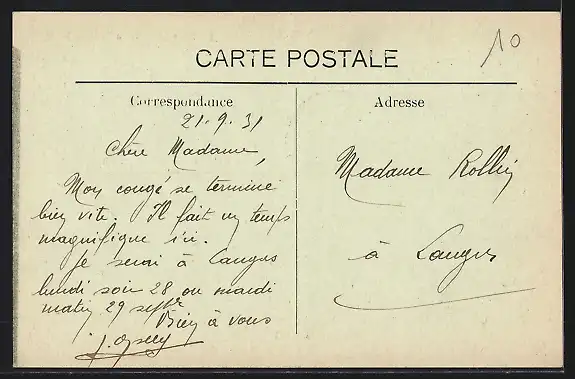 CARTE POSTALE
10
Correspondance
21.9.31
Chère Madame,
Mon congé se termine
bien vite. Il fait un temps
magnifique ici.
Je serai à Langres
lundi soir 28 ou mardi
matin 29 septbre
Bien à vous
Adresse
Madame Rollin
à Langres